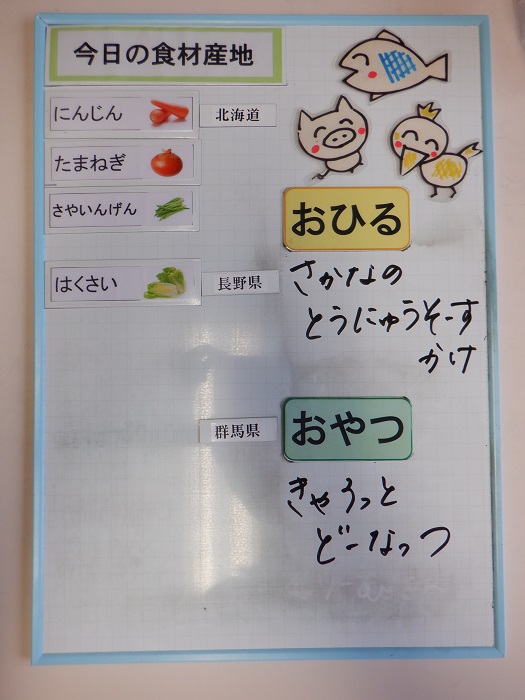 今日の食材産地
にんじん 北海道
たまねぎ
さやいんげん
はくさい 長野県
群馬県
おひる
さかなの
とうにゅうそーす
かけ
おやつ
きゃろっと
どーなっつ